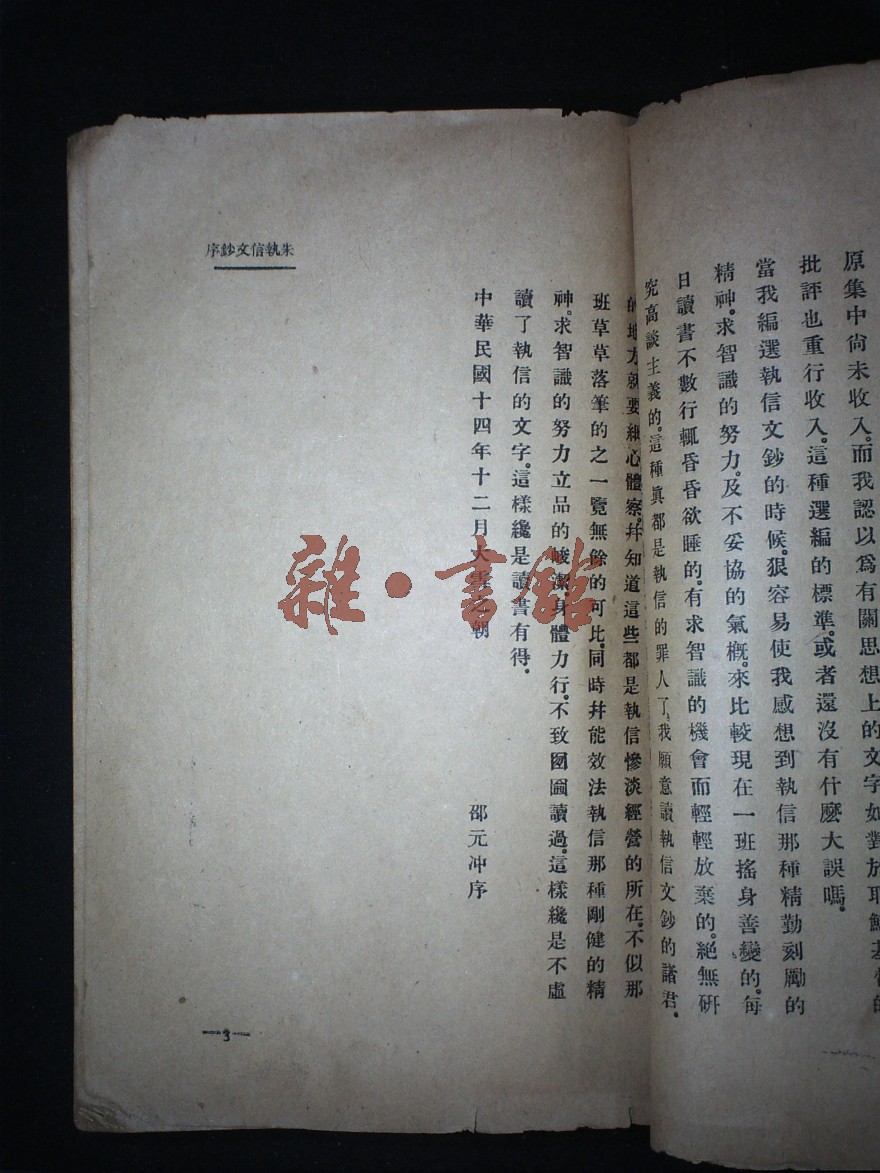 原集中尙未收入。而我認以爲有關思想上的文字如對於耶穌基督的
批評也重行收入。這種選編的標準。或者還沒有什麽大誤嗎。
當我編選執信文鈔的時候。狠容易使我感想到執信那種精勤刻勵的
精神。求智識的努力。及不妥協的氣槪。來比較現在一班搖身善變的。每
日讀書不數行輒昏昏欲睡的。有求智識的機會而輕輕放棄的。絕無硏
究高談主義的。這種眞都是執信的罪人了。我願意讀執信文鈔的諸君。
的地方就要細心體察。幷知道這些都是執信慘淡經營的所在。不似那
班草草落筆的之一覽無餘的可比。同時幷能效法執信那種剛健的精
神。求智識的努力立品的峻潔身體力行。不致囫圇讀過。這樣纔是不虛
讀了執信的文字。這樣纔是讀書有得。
中華民國十四年十二月大雪之朝
邵元冲序
朱執信文鈔序
3
雜·書館